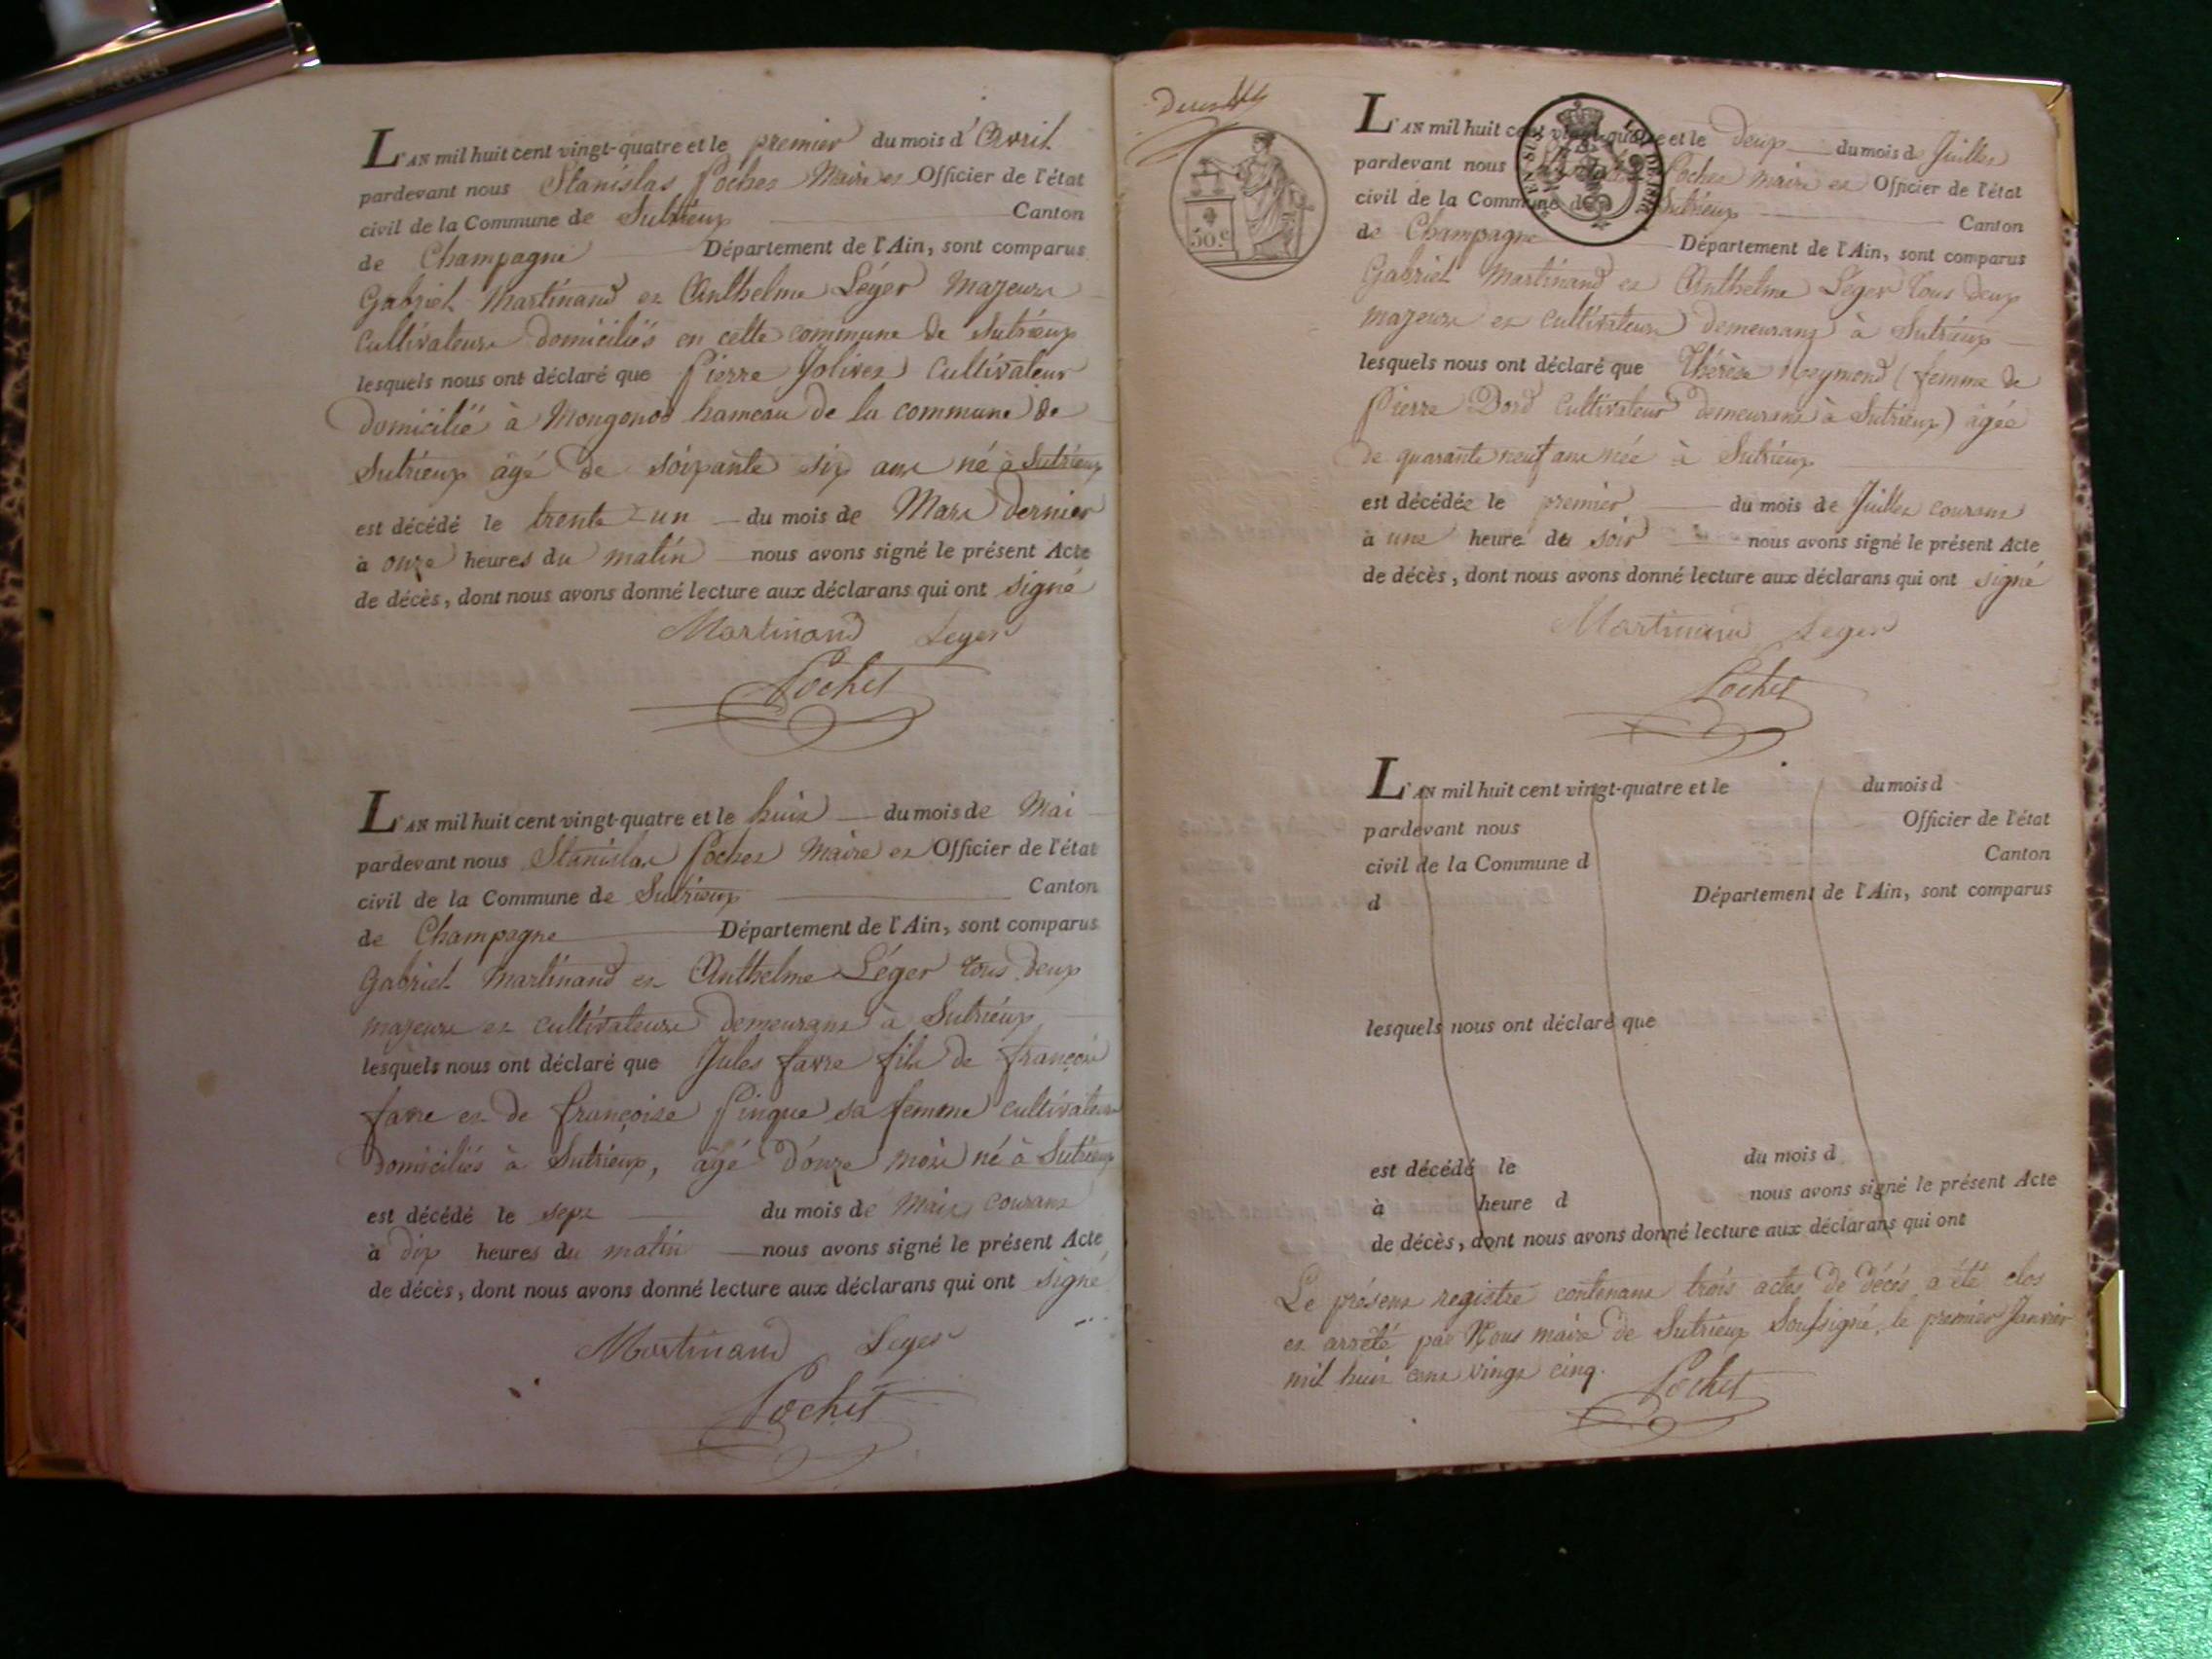 L'AN mil huit cent vingt-quatre et le premier du mois d'Avril
pardevant nous Stanislas Pochet Maire et Officier de l'état
civil de la Commune de Sutrieux Canton
de Champagne Département de l'Ain, sont comparus
Gabriel Martinand et Anthelme Léger majeurs
cultivateurs domiciliés en cette commune de Sutrieux
lesquels nous ont déclaré que Pierre Jolivet cultivateur
domicilié à Mongonod hameau de la commune de
Sutrieux âgé de soixante six ans né à Sutrieux
est décédé le trente-un du mois de Mars dernier
à onze heures du matin nous avons signé le présent Acte
de décès, dont nous avons donné lecture aux déclarans qui ont signé
Martinand Leger
Pochet
L'AN mil huit cent vingt-quatre et le huit du mois de Mai
pardevant nous Stanislas Pochet Maire et Officier de l'état
civil de la Commune de Sutrieux Canton
de Champagne Département de l'Ain, sont comparus
Gabriel Martinand et Anthelme Léger tous deux
majeurs et cultivateurs demeurant à Sutrieux
lesquels nous ont déclaré que Jules favre fils de françois
favre et de françoise Pingue sa femme cultivateurs
domiciliés à Sutrieux, âgé d'onze mois né à Sutrieux
est décédé le sept du mois de Mai courant
à dix heures du matin nous avons signé le présent Acte
de décès, dont nous avons donné lecture aux déclarans qui ont signé
Martinand Leger
Pochet
50.c
L'AN mil huit cent vingt-quatre et le deux du mois d Juillet
pardevant nous Pochet maire et Officier de l'état
civil de la Commune de Sutrieux Canton
de Champagne Département de l'Ain, sont comparus
Gabriel Martinand et Anthelme Léger tous deux
majeurs et cultivateurs demeurant à Sutrieux
lesquels nous ont déclaré que Thérèse Reymond (femme de
Pierre Dord cultivateur demeurant à Sutrieux) âgée
de quarante neuf ans née à Sutrieux
est décédée le premier du mois de Juillet courant
à une heure du soir nous avons signé le présent Acte
de décès, dont nous avons donné lecture aux déclarans qui ont signé
Martinand Leger
Pochet
L'AN mil huit cent vingt-quatre et le du mois d
pardevant nous Officier de l'état
civil de la Commune d Canton
d Département de l'Ain, sont comparus
lesquels nous ont déclaré que
est décédé le du mois d
à heure d nous avons signé le présent Acte
de décès, dont nous avons donné lecture aux déclarans qui ont
Le présent registre contenant trois actes de décès a été clos
et arrêté par Nous maire de Sutrieux Soussigné, le premier Janvier
mil huit cent vingt cinq.
Pochet